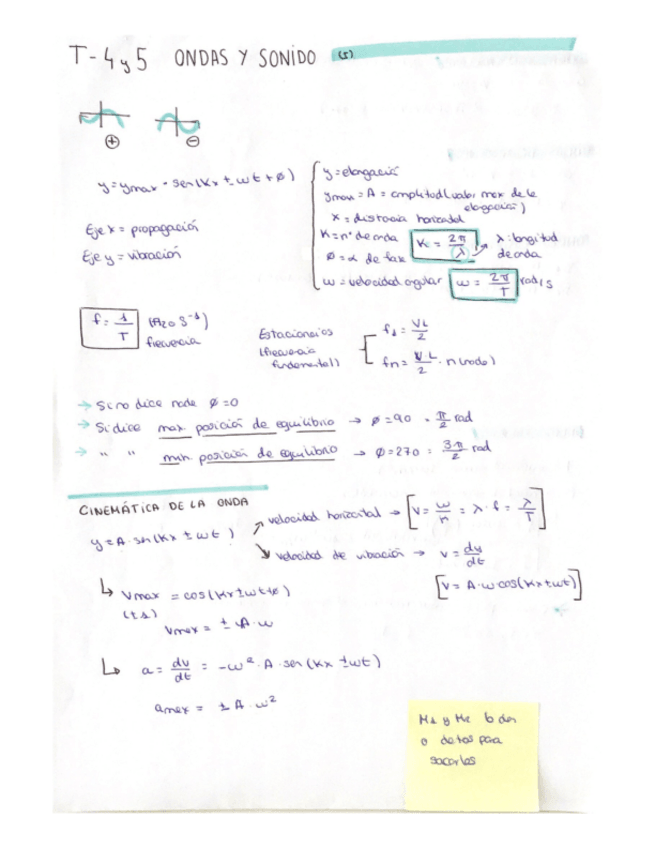 T-4 y 5 ONDAS Y SONIDO (5)
⊕ ⊖
y = ymax · sen(Kx ± ωt + ϕ)
y = elongación
ymax = A = amplitud (valor max de la
elongación)
x = distancia horizontal
K = nº de onda K = 2π/λ λ: longitud
de onda
ϕ = α de fase
ω = velocidad angular ω = 2π/T rad/s
Eje x = propagación
Eje y = vibración
f = 1/T (Hz o S⁻¹)
frecuencia
Estacionarios
(frecuencia
fundamental)
f1 = VL/2
fn = VL/2 · n (nodo)
→ Si no dice nada ϕ = 0
→ Si dice max. posición de equilibrio → ϕ = 90 = π/2 rad
→ " " min. posición de equilibrio → ϕ = 270 = 3π/2 rad
CINEMÁTICA DE LA ONDA
y = A · sen(Kx ± ωt)
velocidad horizontal → [V = ω/K = λ · f = λ/T]
velocidad de vibración → v = dy/dt
[V = A · ω · cos(Kx ± ωt)]
↳ Vmax = cos(Kx ± ωt + ϕ)
(± 1)
Vmax = ± A · ω
↳ a = dv/dt = -ω² · A · sen(Kx ± ωt)
amax = ± A · ω²
o datos para
sacarlas